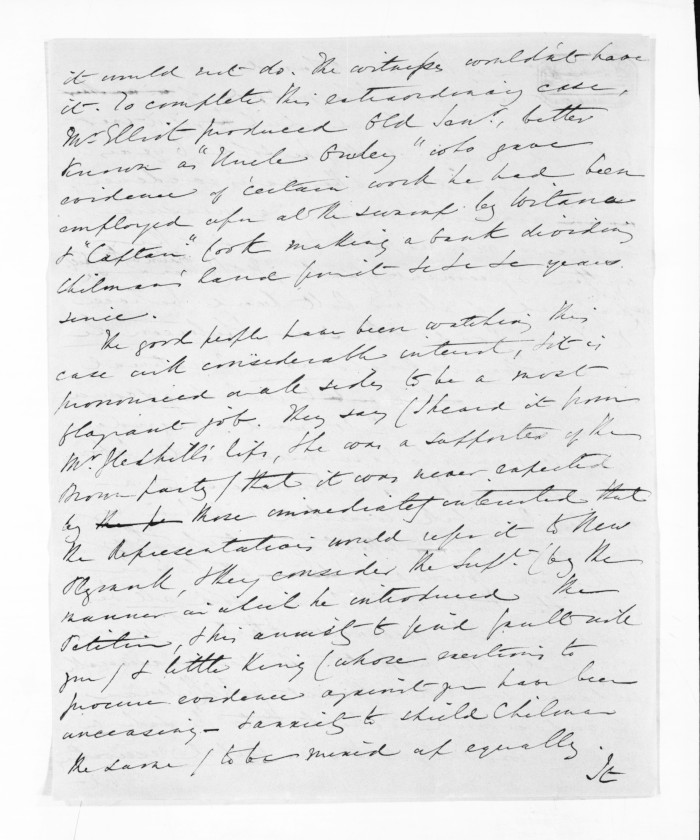 it would not do. The witness wouldn't have
it. To complete this extraordinary case,
Mr Elliot produced Old Sant, better
known as "Uncle Oxley" who gave
evidence of certain work he had been
employed upon at the swamp by
& "Captain" Cook making a bank dividing
Chilman's land from it &c &c &c years
since.
The good people have been watching this
case with considerable interest, & it is
pronounced on all sides to be a most
flagrant job. They say (I heard it from
Mr Heskell's lips, & he was a supporter of the
Brown party) that it was never expected
by the pe those immediately interested that
the Representatives would refer it to New
Plymouth, & they consider the Supt. (by the
manner in which he introduced the
Petition, & his anxiety to find fault with
you) & little King (whose exertions to
procure evidence against you have been
unceasing – & anxiety to shield Chilman
the same) to be mixed up equally.
It